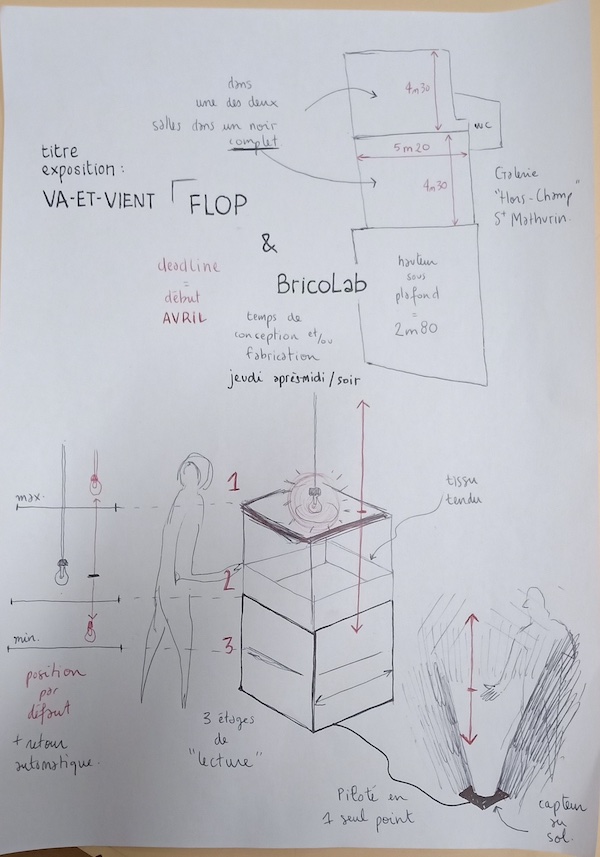 dans
une des deux
salles dans un noir
complet
4m30
WC
5m20
4m30
titre
exposition :
VA-ET-VIENT
FLOP
&
BricoLab
Galerie
"Hors-Champ"
St Mathurin.
hauteur
sous
plafond
=
2m80
deadline
=
début
AVRIL
temps de
conception et/ou
fabrication
jeudi après-midi/soir
max.
min.
position
par
défaut
+ retour
automatique.
1
2
3
tissu
tendu
3 étages
de
"lecture"
Piloté en
1 seul point
capteur
au
sol.